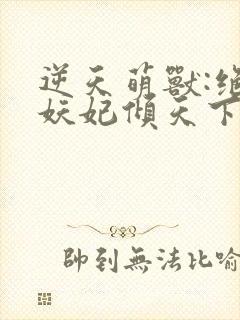 逆天萌獸:絕
妖妃傾天下
帥到無法比喻